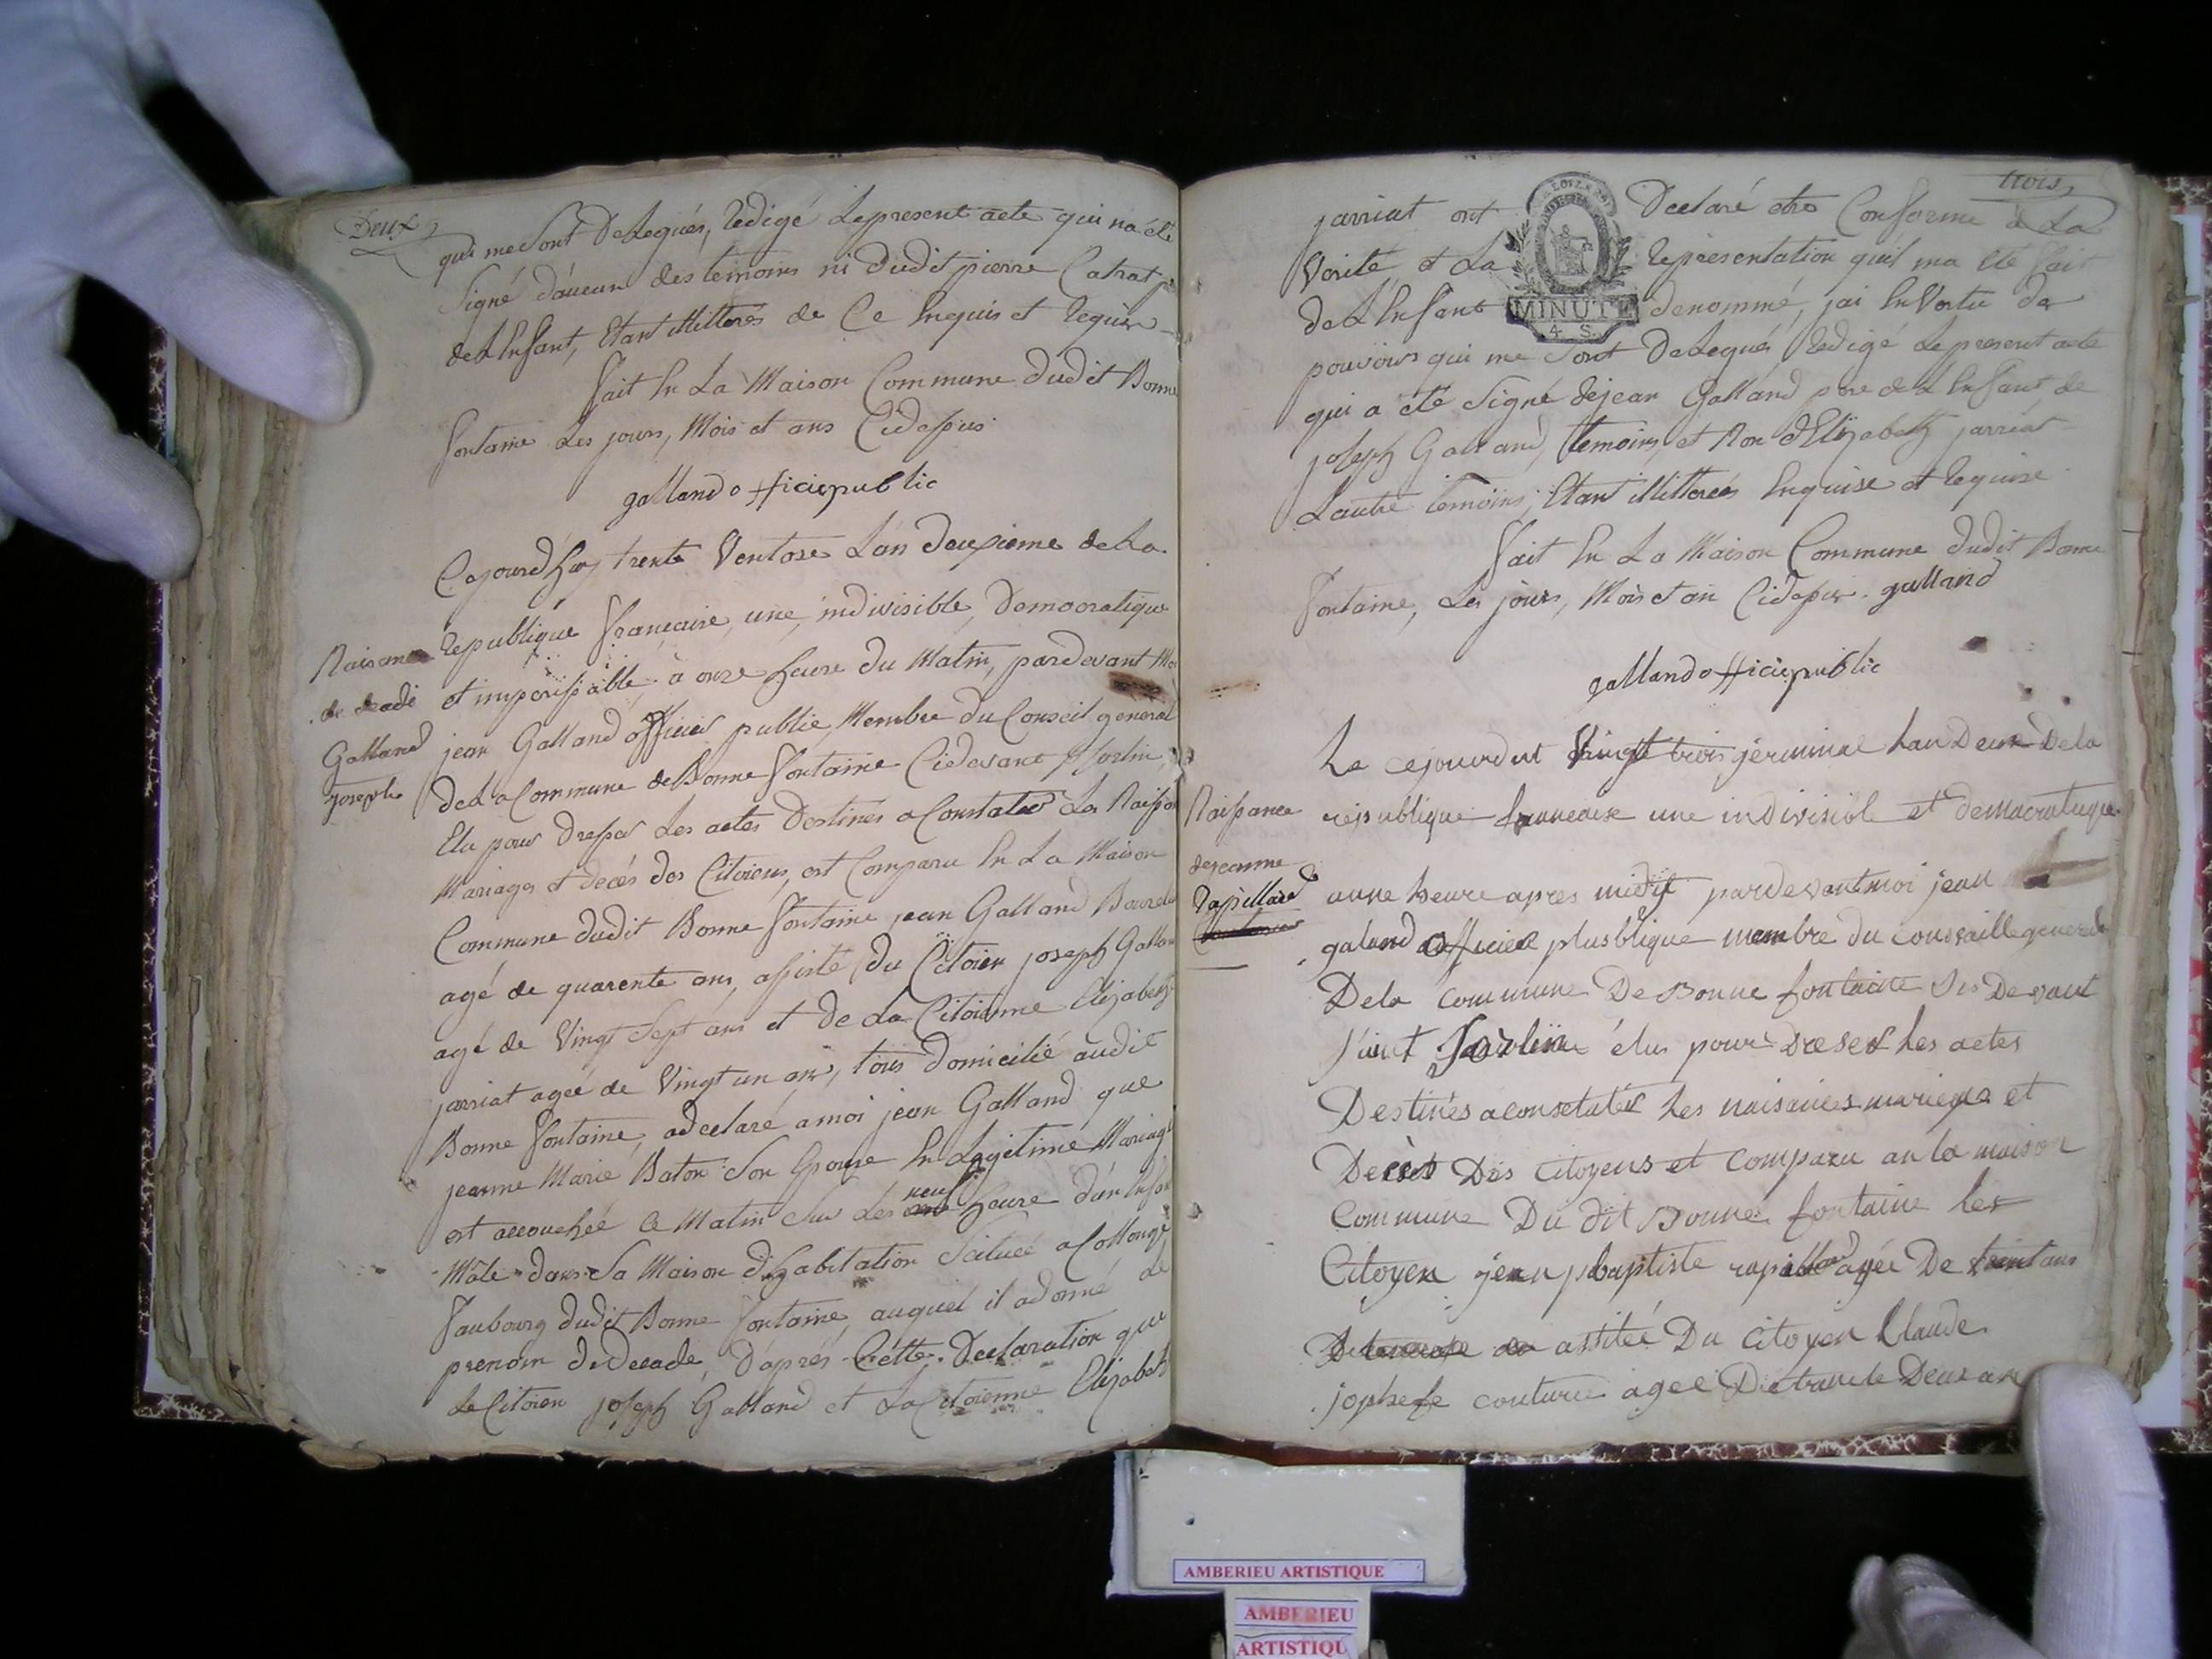 Deux
qui me sont Delegués, redigé Le present acte qui na été
signé d'aucun des temoins ni dudit pierre Catrat
de L'Enfant, Etant illitteres de Ce Enquis et requis
fait En La Maison Commune dudit Bonne
fontaine Les jours, Mois et ans Cidessus
galland officiepublic
Cejourdhuy trente Ventose L'an deuxieme de La
Republique française, une, indivisible, Democratique
et imperissable à onze heure du Matin, pardevant Moi
jean Galland officier public, Membre du Conseil general
de La Commune de Bonne fontaine Cidevant St Sorlin,
Elu pour dresser Les actes Destinés a Constater Les Naissan
Mariages et decés des Citoiens, est Comparu En La Maison
Commune dudit Bonne fontaine jean Galland
agé de quarente ans, assisté du Citoien joseph Gallan
agé de Vingt Sept ans et de La Citoienne Elizabeth
jarriat agée de Vingt un ans, tous Domicilié audit
Bonne fontaine, adeclaré a moi jean Galland que
jeanne Marie Baton Son Epouse En Legitime Mariage
neuf
est accouchée ce Matin Sur Les heure d'un Enfan
Mâle dans Sa Maison d'habitation Scituée a Collonge
faubourg dudit Bonne fontaine, auquel il adonné de
prenom de Decade, D'après Cette Declaration que
Le Citoien joseph Galland et La Citoienne Elizabeth
Naisance
de decadi
Galland
joseph
trois
jarriat ont Declaré etre Conforme à La
Verité et La representation quil ma été fait
de L'Enfant denommé, jai En Vertu de
MINUTE
4. S.
pouvoirs qui me Sont Delegués Redigé Le present acte
qui a été Signé de jean Galland pere de L'Enfant, de
joseph Galland, temoins, et Non d'Elizabeth jarriat
Lautre temoins, Etant illitterées Enquise et requise
fait En La Maison Commune dudit Bonne
fontaine, Les jours, Mois et an Cidessus. galland
galland officiepublic
Le cejourdut Vaingt trois jerminal Lan Deux De la
republique franceaixe une indivisible et democratuque
aune heure apres midit pardevant moi jean
galand officier plusblique membre du consaille general
De la Commune De Bonne fontaine sis Devant
saint Sorlin élus pour Dreser Les actes
Destinés aconstater Les naisances mariages et
Decès Des Citoyens et Comparu an la maison
Commune Du dit Bonne fontaine Les
Citoyen jean jbaptiste rapillard agée De trent ans
assitée Du Citoyen Claude
jophese couturie agée De trante Deux ans
Naissance
de jeanne
Rapillard
AMBERIEU ARTISTIQUE
AMBERIEU
ARTISTIQU